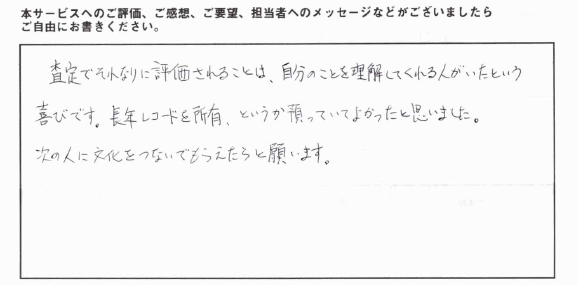 本サービスへのご評価、ご感想、ご要望、担当者へのメッセージなどがございましたら
ご自由にお書きください。
査定でそれなりに評価されることは、自分のことを理解してくれる人がいたという
喜びです。長年レコードを所有、というか預っていてよかったと思いました。
次の人に文化をつないでもらえたらと願います。